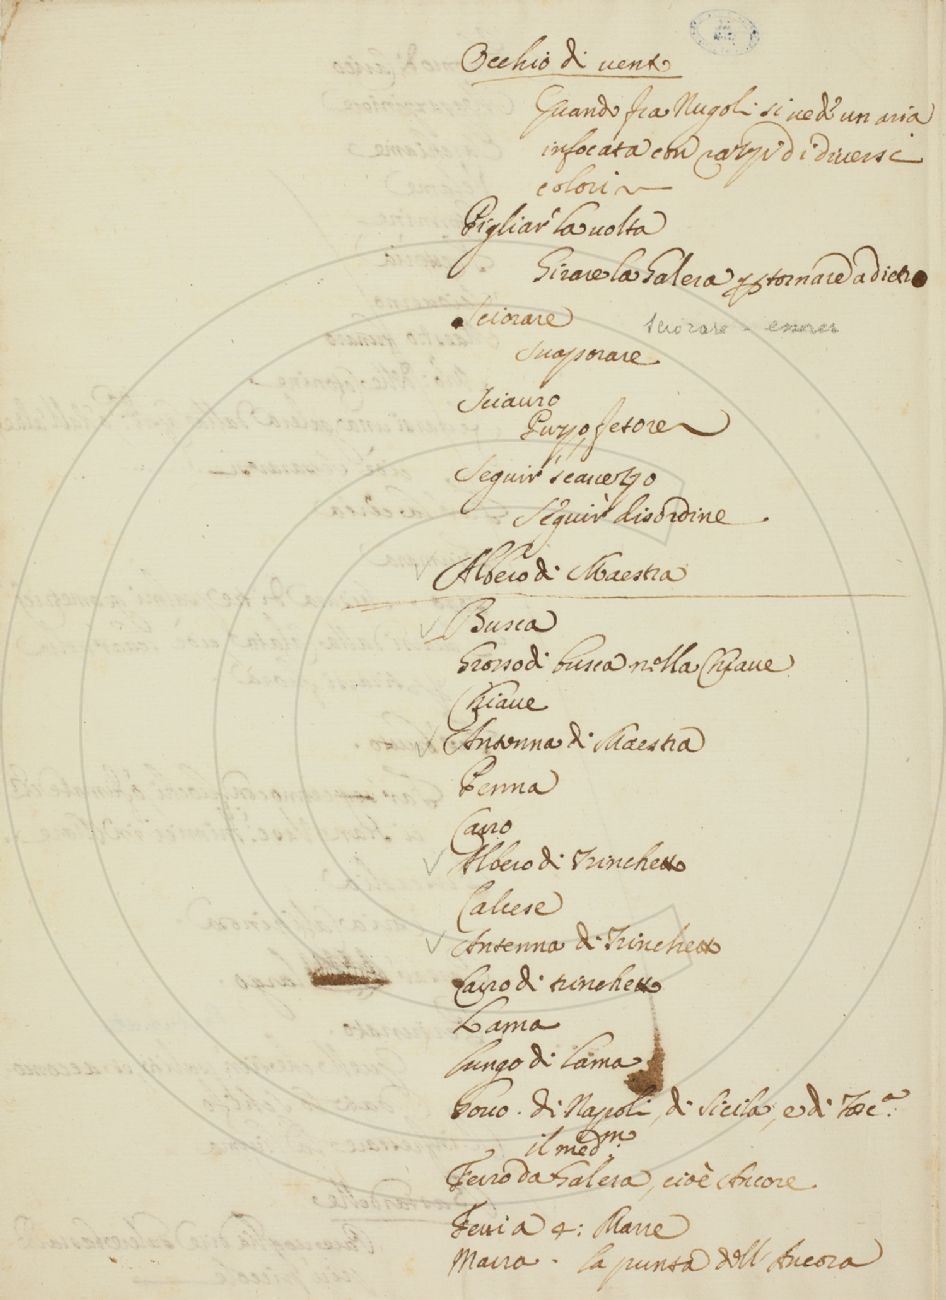 Occhio di vento
Quando fra Nugoli si vede un aria
infocata con razzi di diversi
colori
Pigliar la volta
Girare la Galera per tornare a dietro
Sciorare
Sciorare -
Suaporare
Sciauro
Puzzo, fetore
Seguir scauezzo
Seguir disordine
Albero di Maestra
Busca
Grosso di busca nella Chiaue
Chiaue
Antenna di Maestra
Penna
Carro
Albero di Trinchetto
Calcese
Antenna di Trinchetto
Carro di trinchetto
Lama
lungo di lama
di Napoli, di Sicilia, e di
il med.mo
Ferro da Galera, cioè Ancore
Ferri a 4: Marre
Marra - la punta dell' Ancora